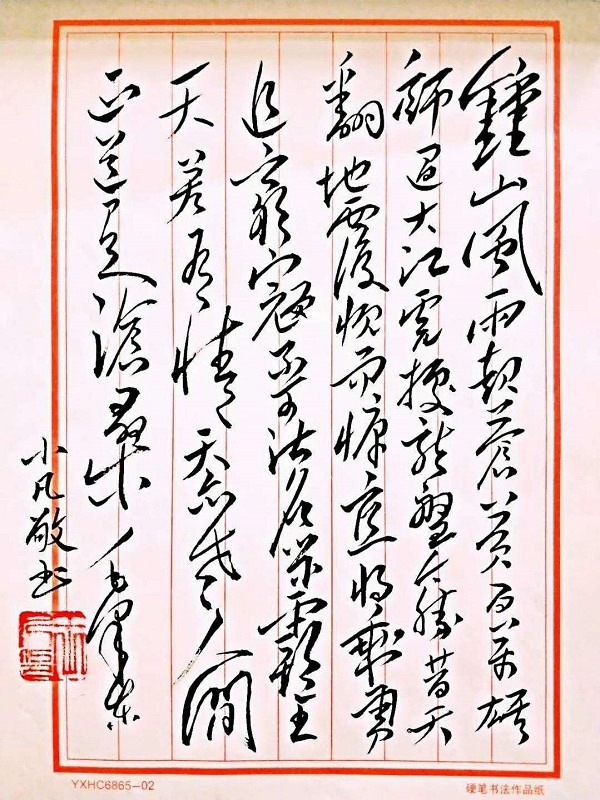 鍾山風雨起蒼黃百万雄
師過大江虎踞龍盤今勝昔天
翻地覆慨而慷宜將剩勇
追窮寇不可沽名學霸王
天若有情天亦老人間
正道是滄桑 毛澤東
小凡敬书
YXHC6865-02
硬笔书法作品纸